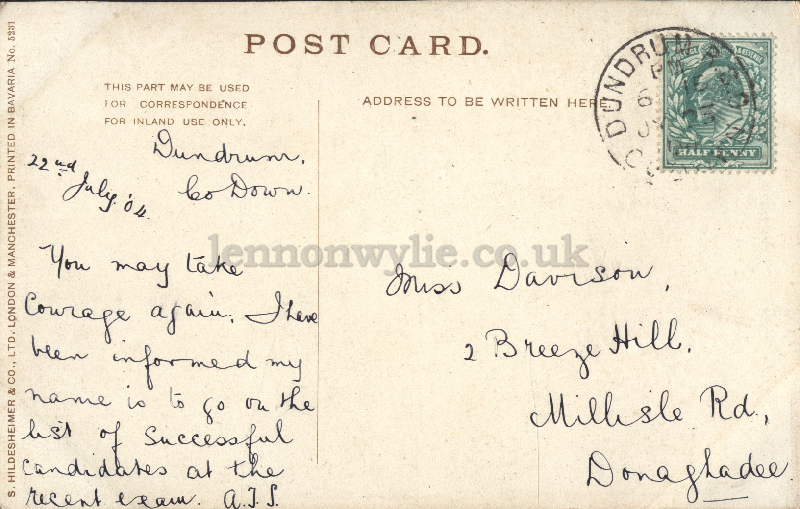 POST CARD.
THIS PART MAY BE USED
FOR CORRESPONDENCE
FOR INLAND USE ONLY.
ADDRESS TO BE WRITTEN HERE.
DUNDRUM
HALF PENNY
Dundrum,
Co Down.
22nd July '04.
You may take
Courage again. I have
been informed my
name is to go on the
list of successful
candidates at the
recent exam. A.J.S.
Miss Davison,
2 Breeze Hill,
Millisle Rd.,
Donaghadee
lennonwylie.co.uk
S. HILDESHEIMER & CO., LTD. LONDON & MANCHESTER. PRINTED IN BAVARIA No. 5231